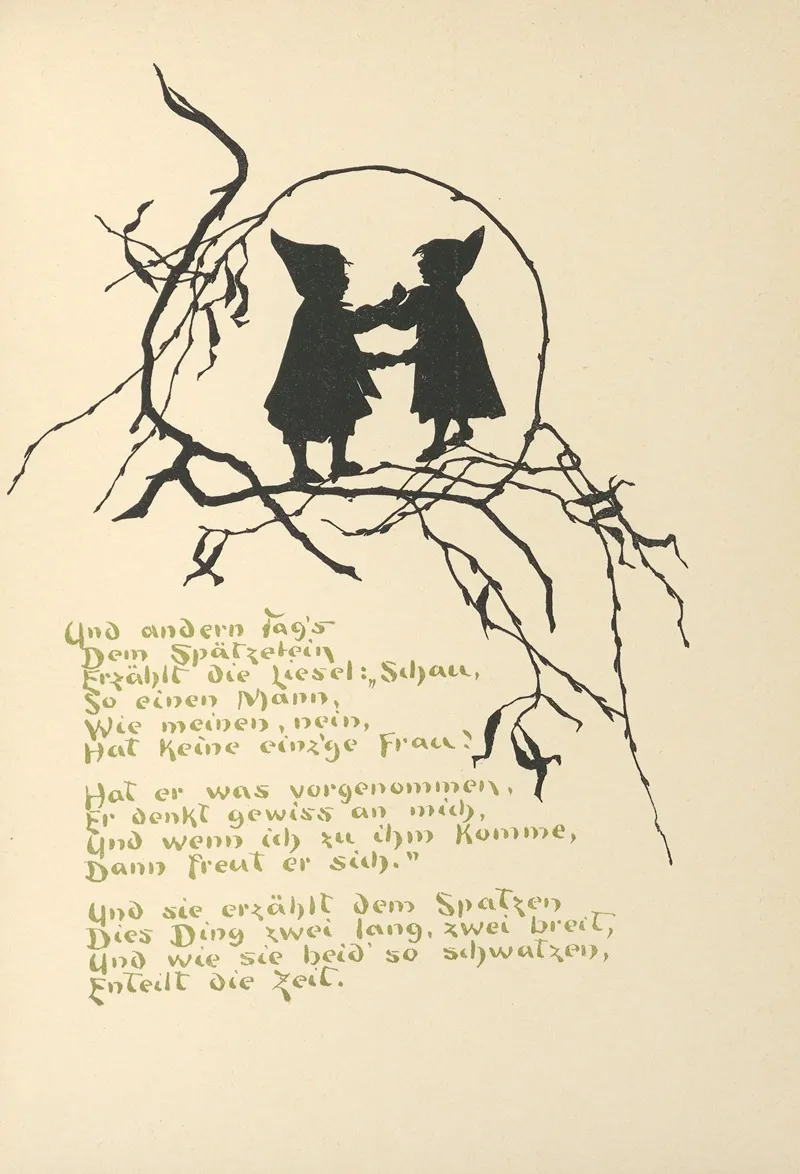 Und andern Tag's
Dem Spätzelein
Erzählt die Liesel: „Schau,
So einen Mann,
Wie meinen, nein,
Hat keine einz'ge Frau!
Hat er was vorgenommen,
Er denkt gewiss an mich,
Und wenn ich zu ihm komme,
Dann freut er sich."
Und sie erzählt dem Spatzen
Dies Ding zwei lang, zwei breit,
Und wie sie beid' so schwatzen,
Enteilt die Zeit.